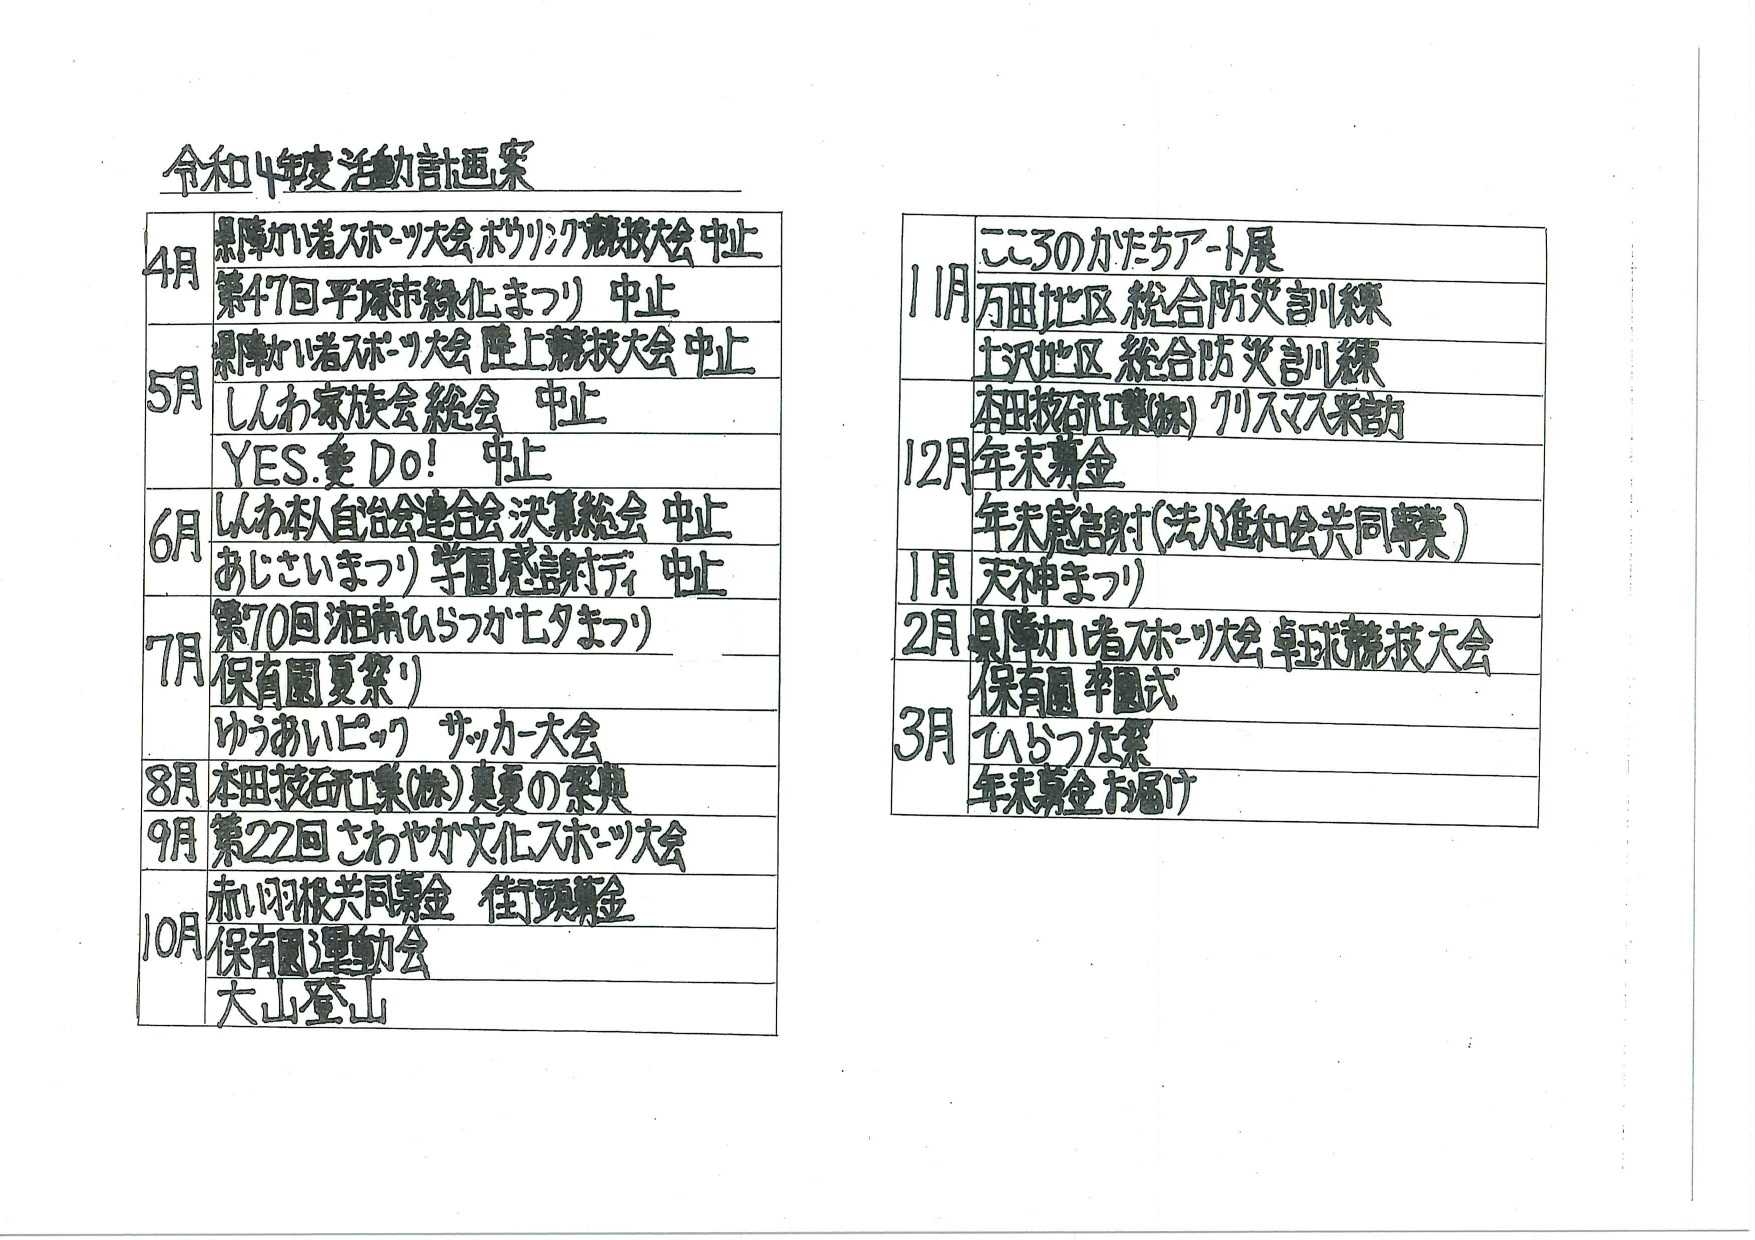 令和4年度活動計画案
4月
県障がい者スポーツ大会 ボウリング競技大会 中止
第47回平塚市緑化まつり 中止
5月
県障がい者スポーツ大会 陸上競技大会 中止
しんわ家族会総会 中止
YES.愛 Do! 中止
6月
しんわ本人自治会連合会 決算総会 中止
あじさいまつり 学園感謝デイ 中止
7月
第70回湘南ひらつか七夕まつり
保育園夏祭り
ゆうあいピック サッカー大会
8月
本田技研工業(株)真夏の祭典
9月
第22回 さわやか文化スポーツ大会
10月
赤い羽根共同募金 街頭募金
保育園運動会
大山登山
11月
こころのかたちアート展
万田地区 総合防災訓練
土沢地区 総合防災訓練
12月
本田技研工業(株) クリスマス来訪
年末募金
年末感謝(法人進和会共同事業)
1月
天神まつり
2月
県障がい者スポーツ大会 卓球競技大会
3月
保育園 卒園式
ひらつな祭
年末募金お届け